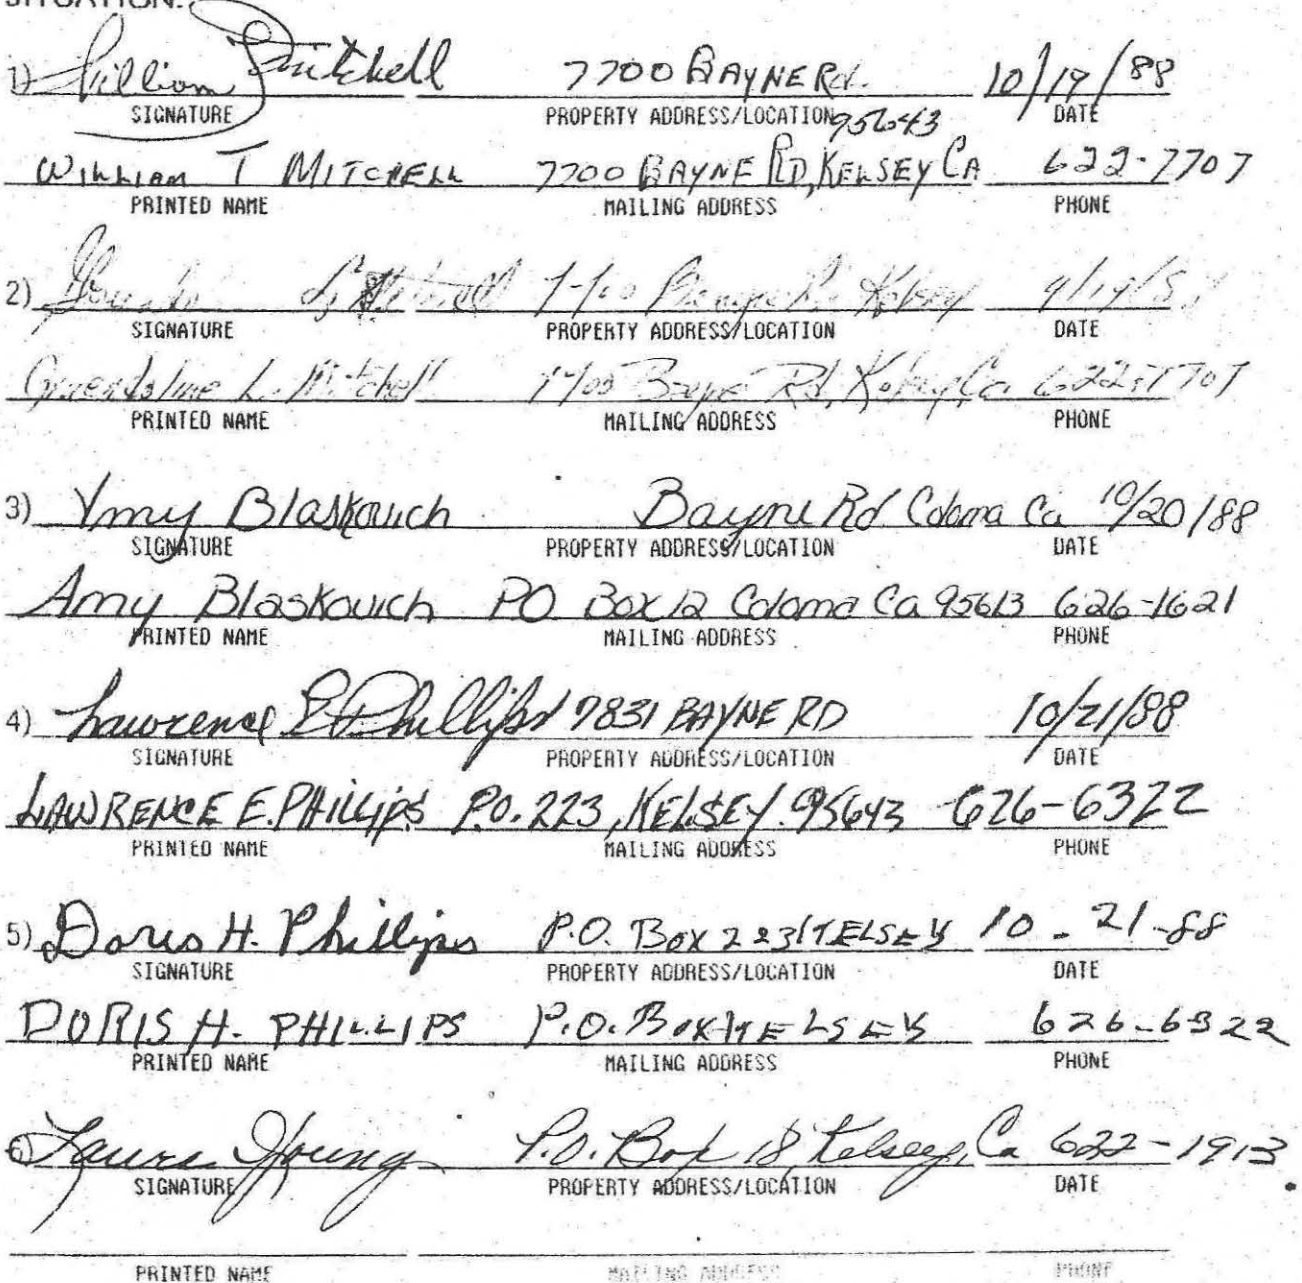 SITUATION:
1) William Mitchell 7700 BAYNE Rd. 10/19/88
SIGNATURE PROPERTY ADDRESS/LOCATION DATE
95643
WILLIAM T MITCHELL 7700 BAYNE RD, KELSEY CA 622-7707
PRINTED NAME MAILING ADDRESS PHONE
2) L. Mitchell Rd. Kelsey
SIGNATURE PROPERTY ADDRESS/LOCATION DATE
Gwendoline L. Mitchell Bayne Rd, Kelsey, Ca 622-7707
PRINTED NAME MAILING ADDRESS PHONE
3) Amy Blaskovich Bayne Rd Coloma Ca 10/20/88
SIGNATURE PROPERTY ADDRESS/LOCATION DATE
Amy Blaskovich PO Box 12 Coloma Ca 95613 626-1621
PRINTED NAME MAILING ADDRESS PHONE
4) Lawrence E Phillips 7831 BAYNE RD 10/21/88
SIGNATURE PROPERTY ADDRESS/LOCATION DATE
LAWRENCE E. PHILLIPS P.O. 223, KELSEY. 95643 626-6322
PRINTED NAME MAILING ADDRESS PHONE
5) Doris H. Phillips P.O. Box 223 KELSEY 10-21-88
SIGNATURE PROPERTY ADDRESS/LOCATION DATE
DORIS H. PHILLIPS P.O. Box KELSEY 626-6322
PRINTED NAME MAILING ADDRESS PHONE
6) Laura Young P.O. Box 18, Kelsey, Ca 622-1913
SIGNATURE PROPERTY ADDRESS/LOCATION DATE
PRINTED NAME MAILING ADDRESS PHONE